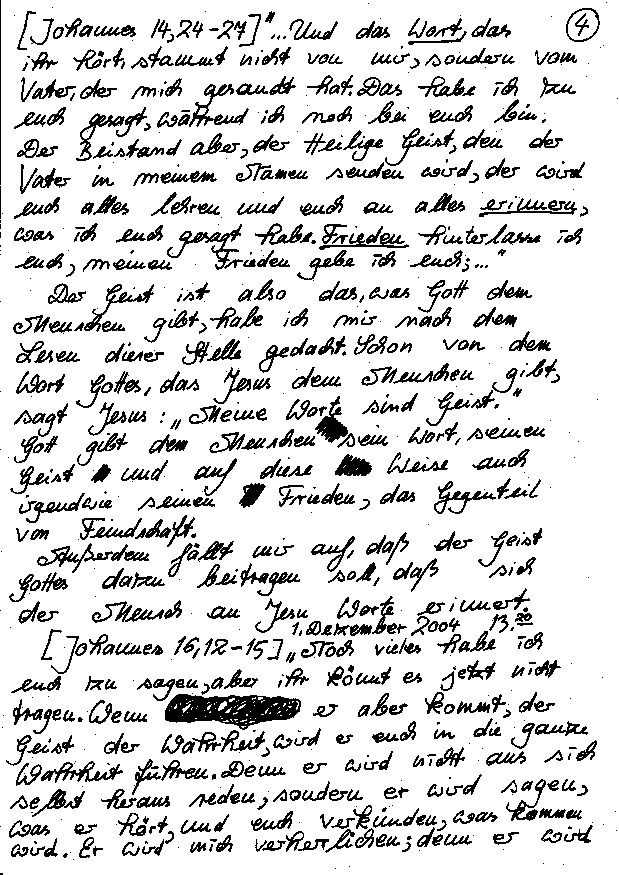 [Johannes 14,24-27] "... Und das Wort, das ④
ihr hört, stammt nicht von mir, sondern vom
Vater, der mich gesandt hat. Das habe ich zu
euch gesagt, während ich noch bei euch bin.
Der Beistand aber, der Heilige Geist, den der
Vater in meinem Namen senden wird, der wird
euch alles lehren und euch an alles erinnern,
was ich euch gesagt habe. Frieden hinterlasse ich
euch, meinen Frieden gebe ich euch; ..."
Der Geist ist also das, was Gott dem
Menschen gibt, habe ich mir nach dem
Lesen dieser Stelle gedacht. Schon von dem
Wort Gottes, das Jesus dem Menschen gibt,
sagt Jesus: „Meine Worte sind Geist."
Gott gibt dem Menschen sein Wort, seinen
Geist und auf diese Weise auch
irgendwie seinen Frieden, das Gegenteil
von Feindschaft.
Außerdem fällt mir auf, daß der Geist
Gottes dazu beitragen soll, daß sich
der Mensch an Jesu Worte erinnert.
1. Dezember 2004 13.20
[Johannes 16,12-15] „Noch vieles habe ich
euch zu sagen, aber ihr könnt es jetzt nicht
tragen. Wenn er aber kommt, der
Geist der Wahrheit, wird er euch in die ganze
Wahrheit führen. Denn er wird nicht aus sich
selbst heraus reden, sondern er wird sagen,
was er hört, und euch verkünden, was kommen
wird. Er wird mich verherrlichen; denn er wird